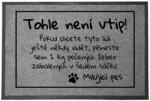 Tohle není vtip!
Pokud chcete tyto lidi
ještě někdy vidět, přineste
sem 2 kg pečených žeber
zabalených v šedém sáčku
Milující pes